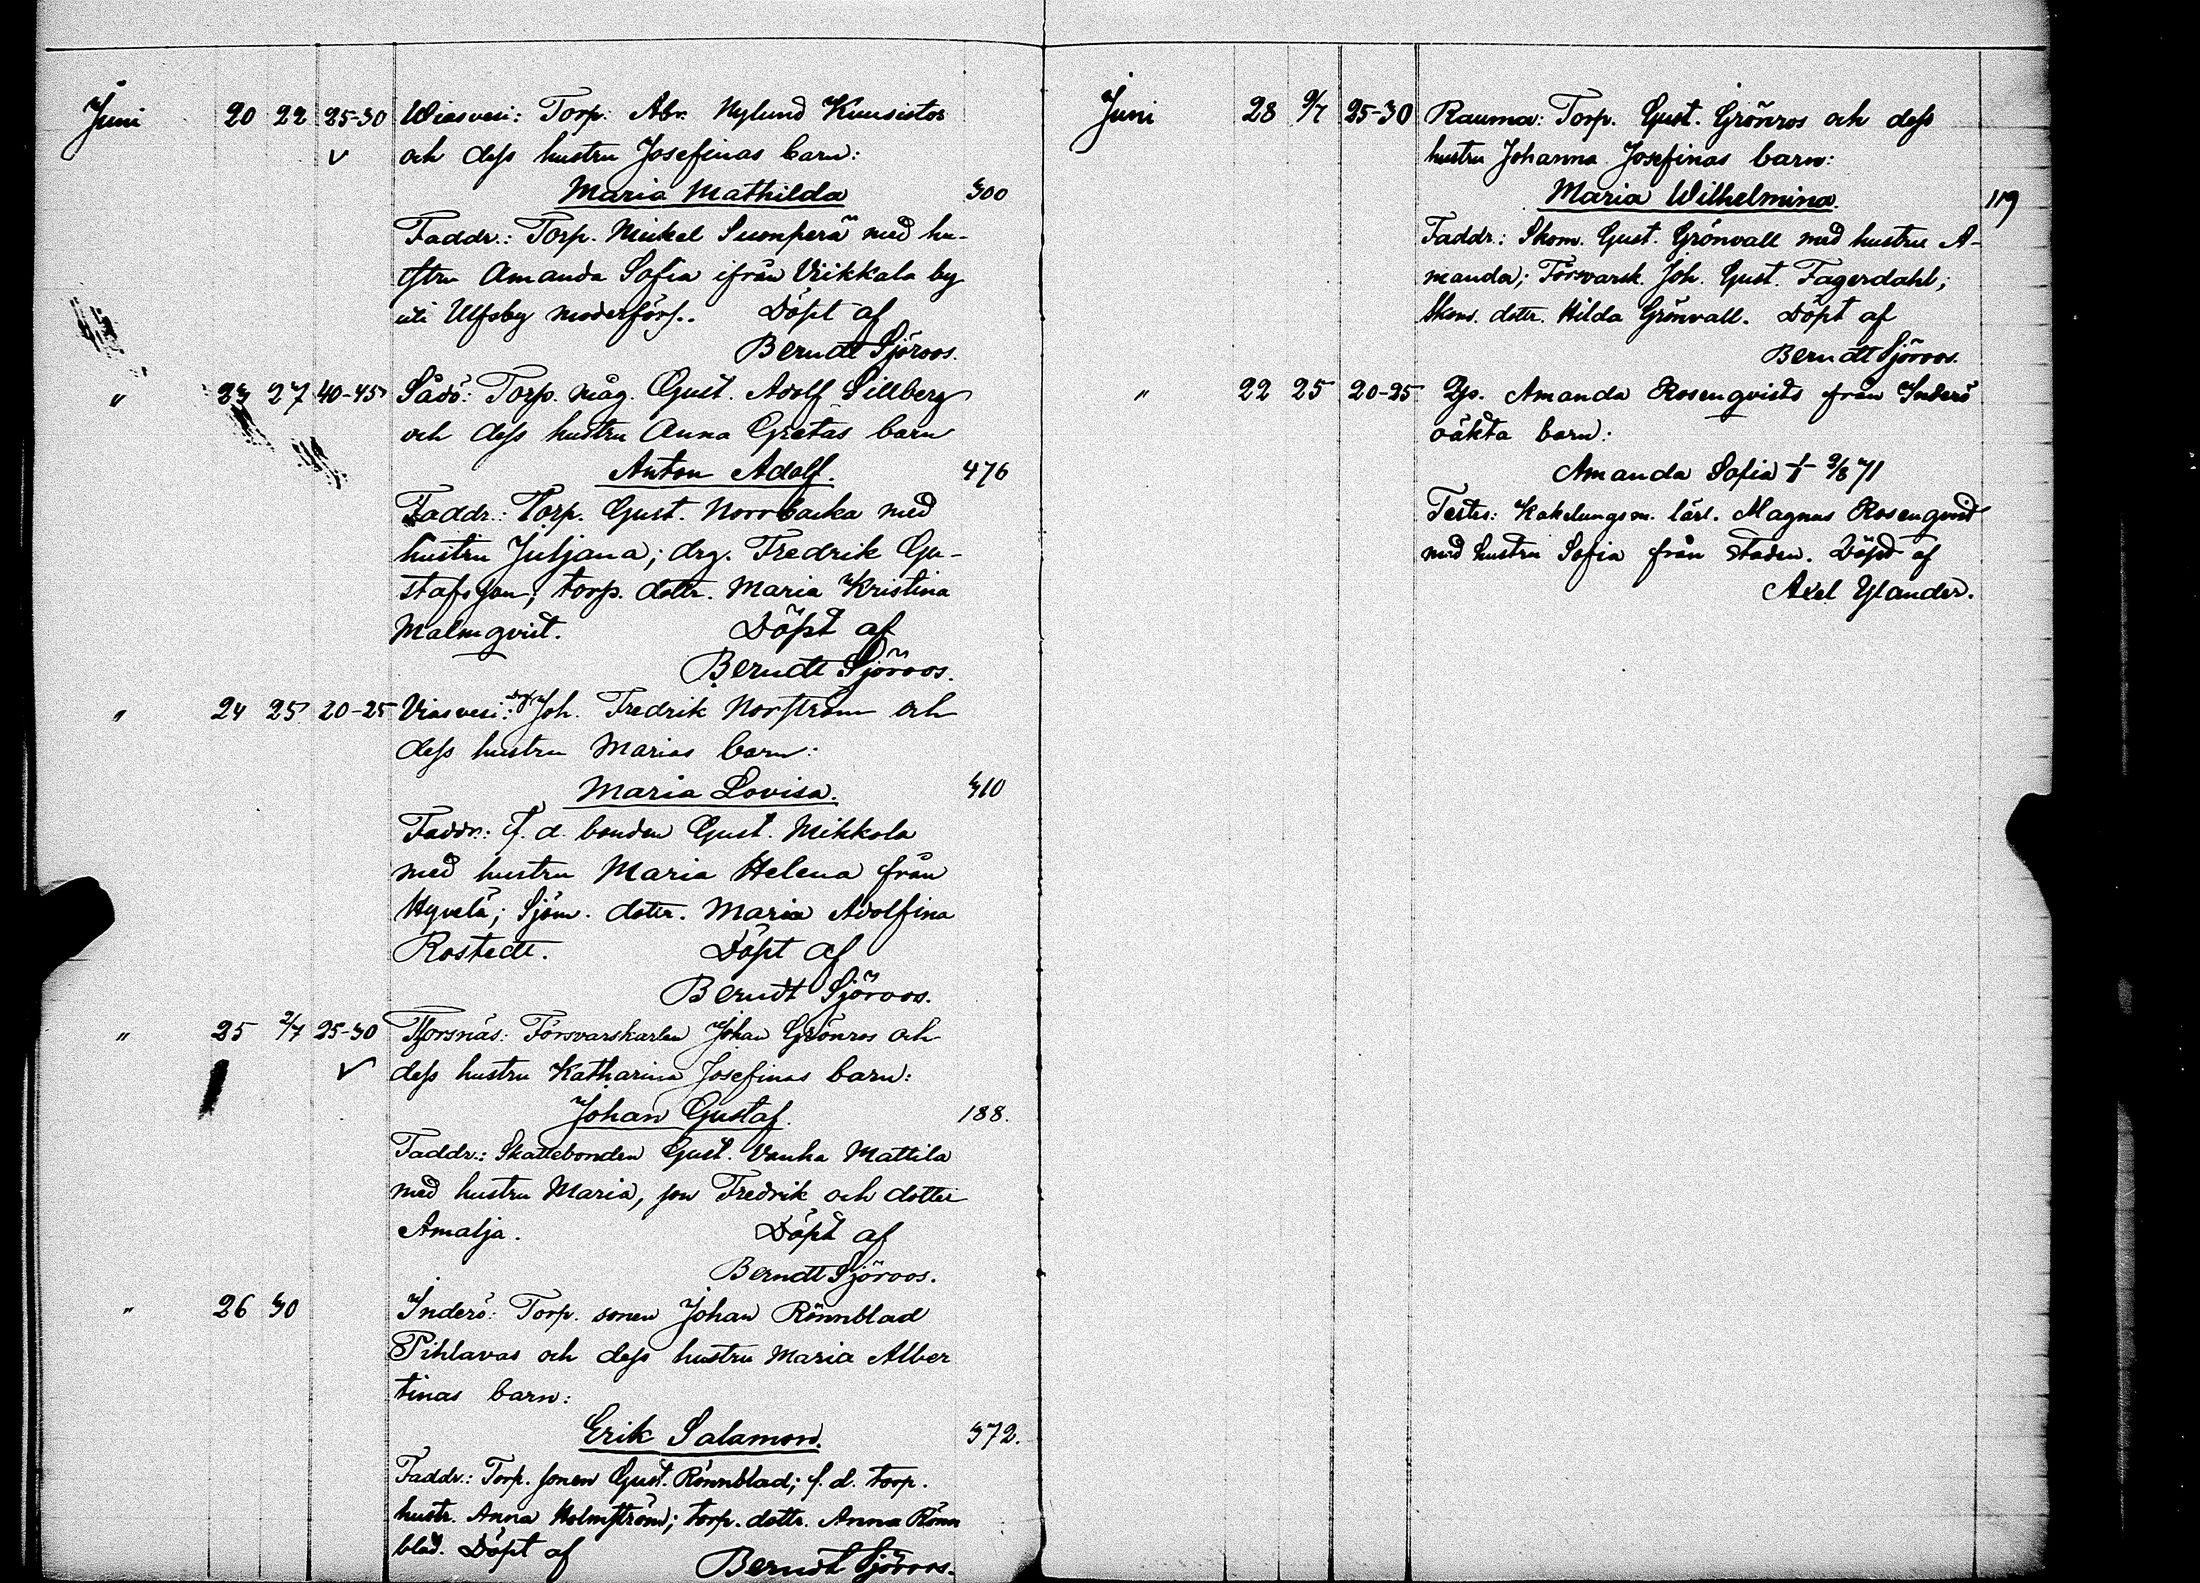 Juni 20 22 25-30 Wiasvesi: Torp. Abr. Nylund Kuusistos
✓ och dess hustru Josefinas barn:
Maria Mathilda 300
Faddr.: Torp. Mickel Suonperä med hu-
stru Amanda Sofia ifrån Viikkala by
uti Ulfsby moderförs. Döpt af
Berndt Sjöroos.
" 23 27 40-45 Sådö: Torp. måg. Gust. Adolf Sillberg
och dess hustru Anna Gretas barn
Anton Adolf. 476
Faddr.: Torp. Gust. Norrbacka med
hustru Juljana; drg. Fredrik Gu-
stafsson; torp. dottr. Maria Kristina
Malmqvist. Döpt af
Berndt Sjöroos.
" 24 25 20-25 Viasvesi: Drg. Joh. Fredrik Norström och
dess hustru Marias barn:
Maria Lovisa. 310
Faddr.: f. d. bonden Gust. Mikkola
med hustru Maria Helena från
Hyvelä; Sjöm. dottr. Maria Adolfina
Rostedt. Döpt af
Berndt Sjöroos.
" 25 2/7 25-30 Torsnäs: Försvarskarlen Johan Grönros och
✓ dess hustru Katharina Josefinas barn:
Johan Gustaf. 188.
Faddr.: Skattebonden Gust. Vanha Mattila
med hustru Maria, son Fredrik och dotter
Amalja. Döpt af
Berndt Sjöroos.
" 26 30 Inderö: Torp. sonen Johan Rönnblad
Pihlavas och dess hustru Maria Alber
tinas barn:
Erik Salamon. 372.
Faddr.: Torp. sonen Gust. Rönnblad; f. d. torp.
hustr. Anna Holmström; torp. dottr. Anna Rönn
blad. Döpt af Berndt Sjöroos.
Juni 28 9/7 25-30 Rauma: Torp. Gust. Grönros och dess
hustru Johanna Josefinas barn:
Maria Wilhelmina. 119
Faddr.: Skom. Gust. Grönvall med hustru A-
manda; Försvarsk. Joh. Gust. Fagerdahl;
Skom. dottr. Hilda Grönvall. Döpt af
Berndt Sjöroos.
" 22 25 20-25 Pgs. Amanda Rosenqvists från Inderö
oäkta barn:
Amanda Sofia † 2/8 71
Testes: Kakelungsm. lärl. Magnus Rosenqvist
med hustru Sofia från staden. Döpt af
Axel Ylander.